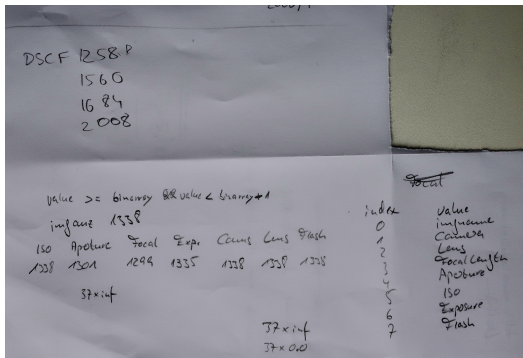 DSCF 1258
1560
1684
2008
value >= binarray && value < binarray+1
imganz 1338
ISO Aperture Focal Expo. Cam Lens Flash
1338 1301 1299 1335 1338 1338 1338
37 x inf
37 x inf
37 x 0.0
Focal
index value
0 imgname
1 Camera
2 Lens
3 Focal Length
4 Aperture
5 ISO
6 Exposure
7 Flash